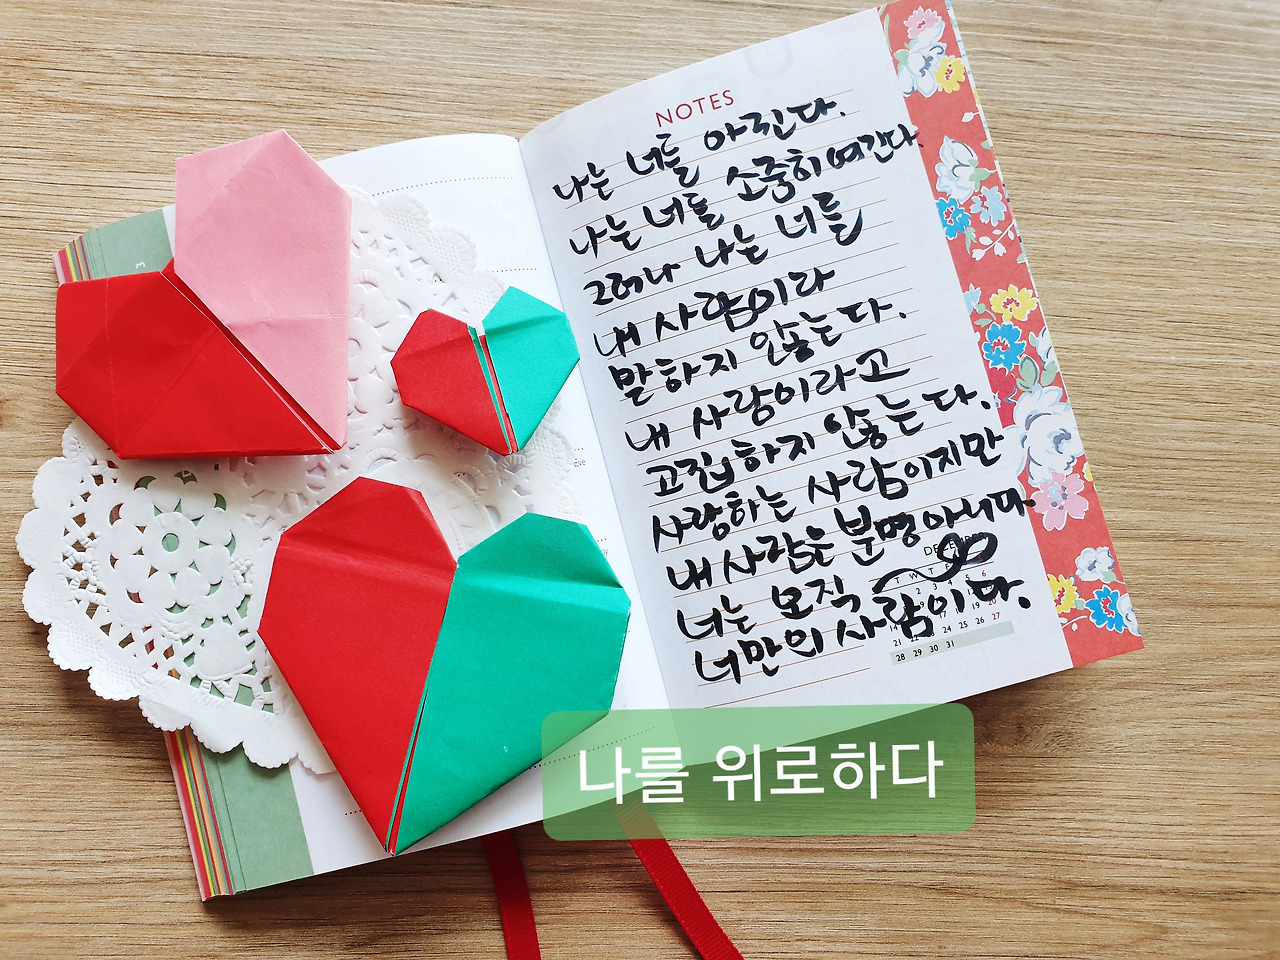 NOTES
나는 너를 아낀다.
나는 너를 소중히 여긴다.
그러나 나는 너를
내 사람이라
말하지 않는다.
내 사람이라고
고집하지 않는다.
사랑하는 사람이지만
내 사람은 분명 아니다.
너는 오직
너만의 사람이다.
21 22 23 24 25 26 27
28 29 30 31
나를 위로하다